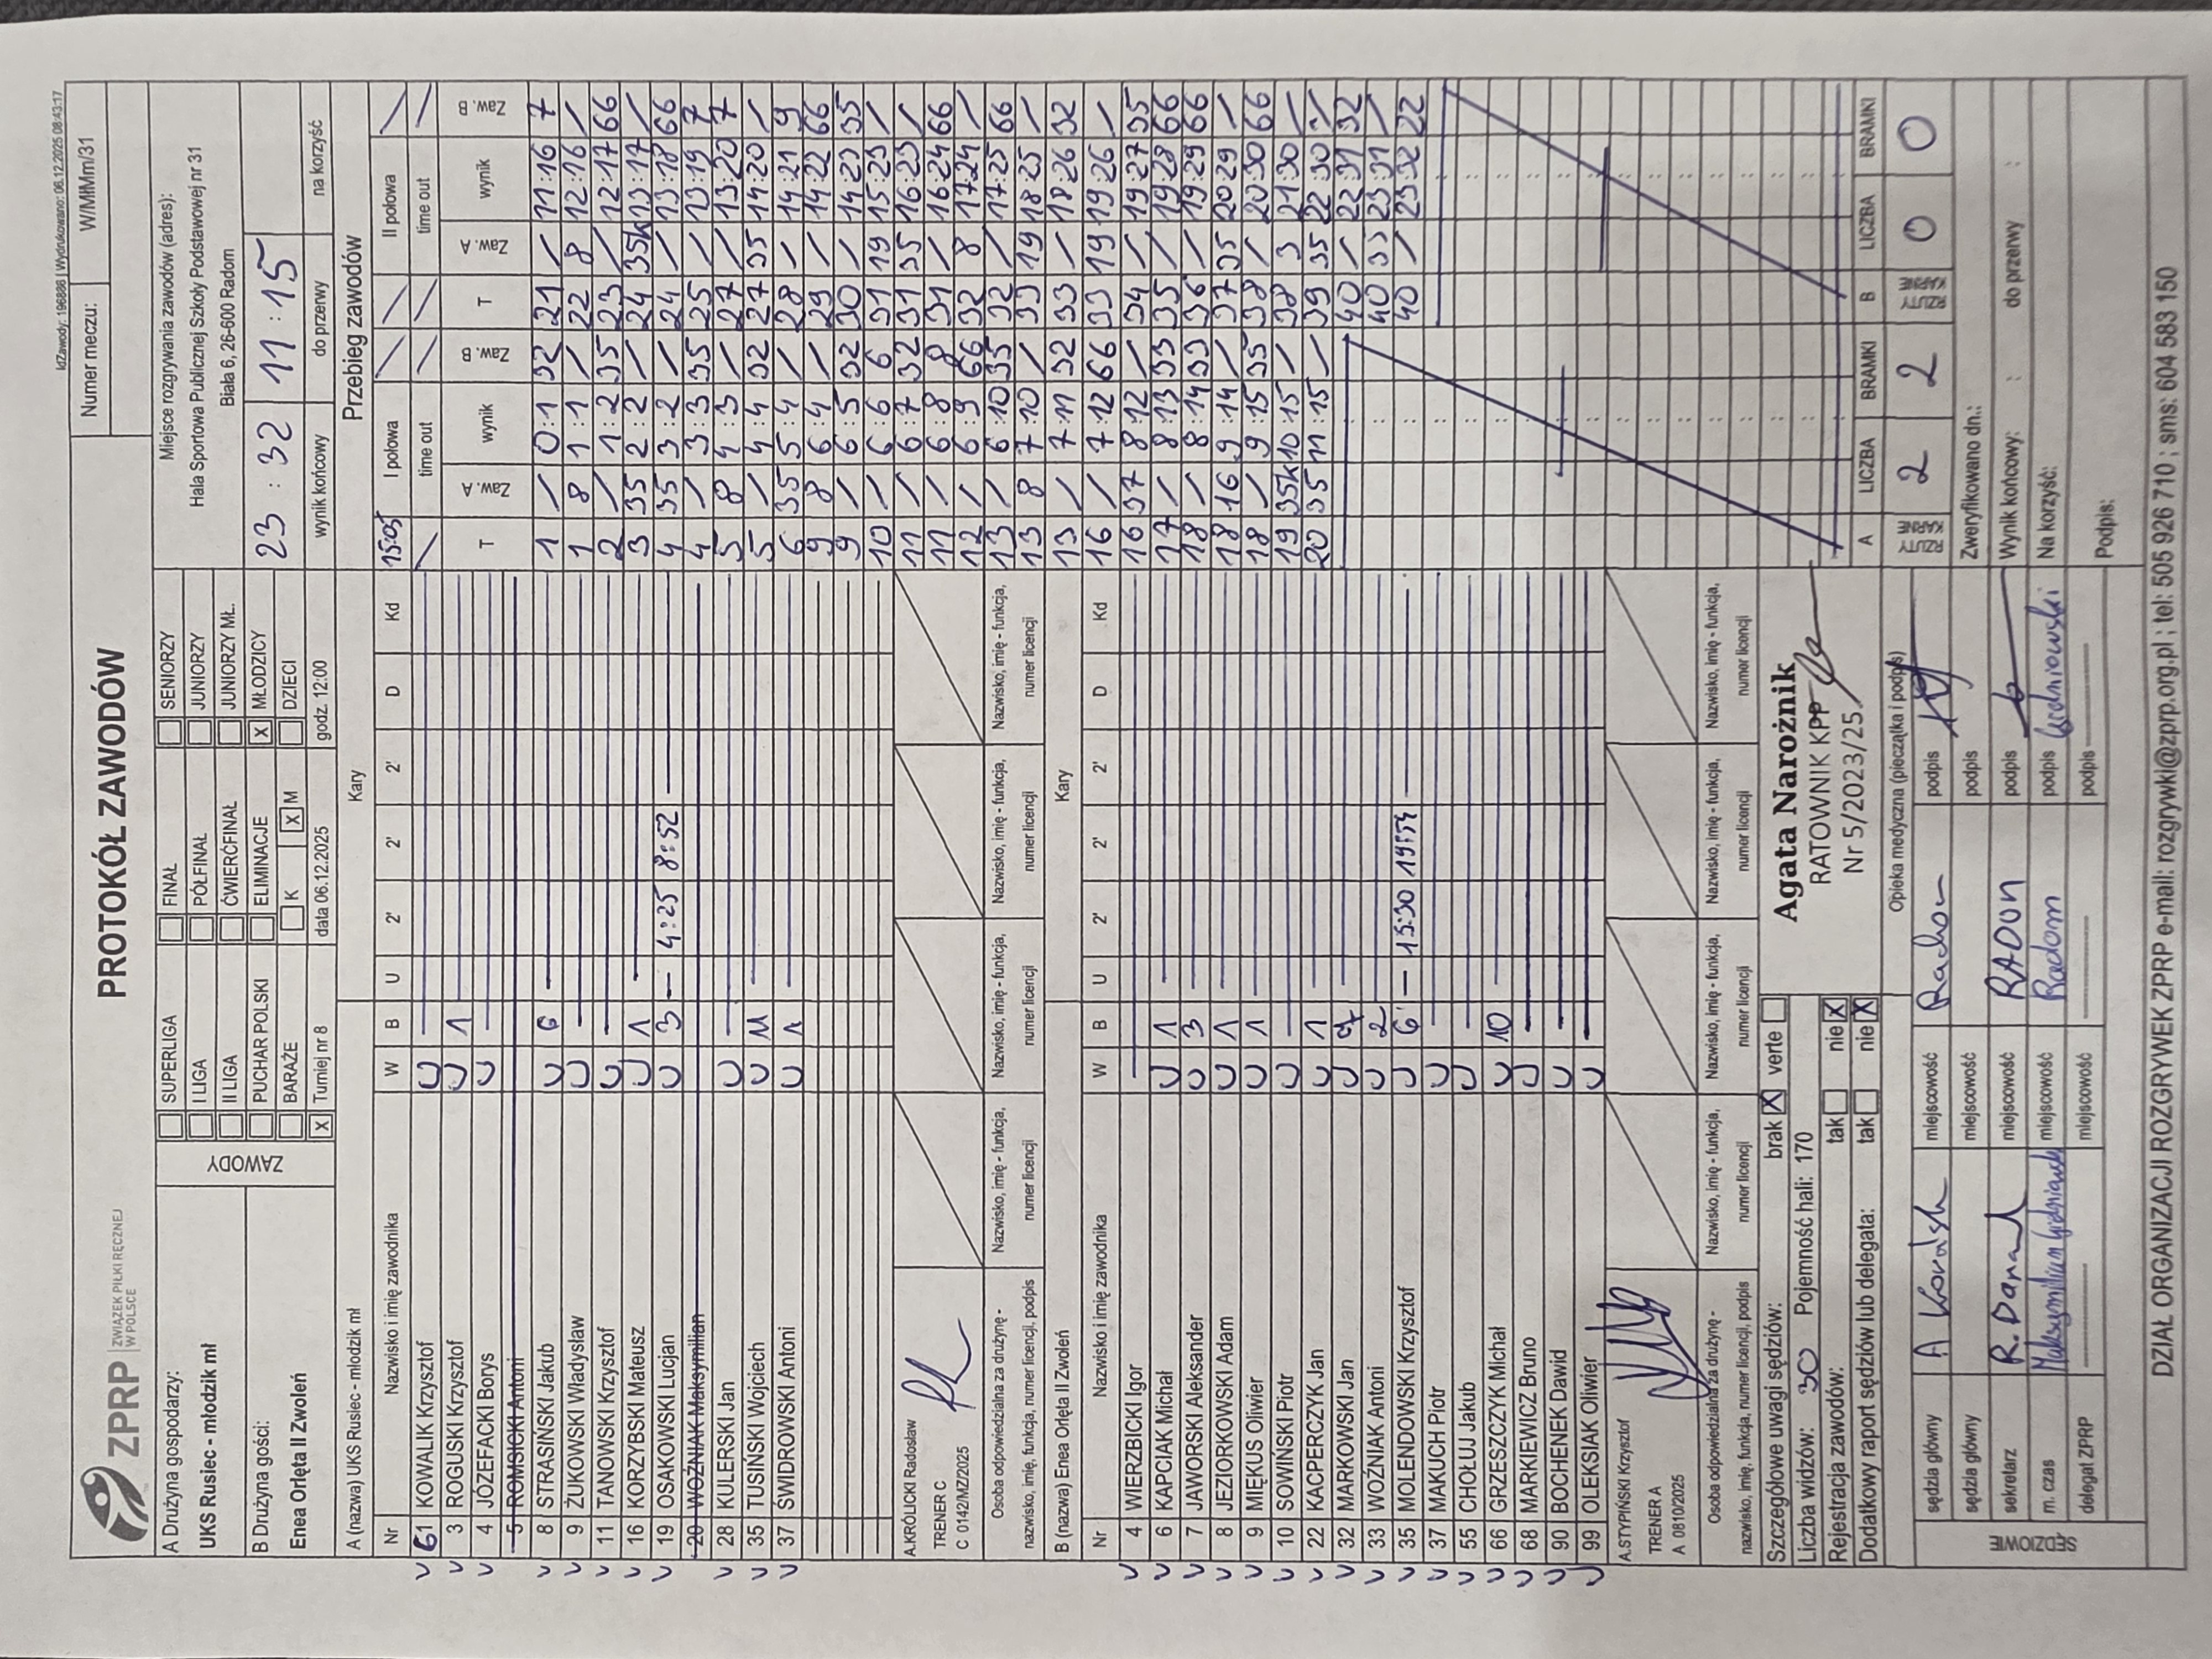 IdZawody: 196886 | Wydrukowano: 06.12.2025 08:43:17
ZPRP ZWIĄZEK PIŁKI RĘCZNEJ W POLSCE
PROTOKÓŁ ZAWODÓW
Numer meczu: W/MłMm/31
A Drużyna gospodarzy:
UKS Rusiec - młodzik mł
B Drużyna gości:
Enea Orlęta II Zwoleń
ZAWODY
SUPERLIGA FINAŁ SENIORZY
I LIGA PÓŁFINAŁ JUNIORZY
II LIGA ĆWIERĆFINAŁ JUNIORZY MŁ.
PUCHAR POLSKI ELIMINACJE X MŁODZICY
BARAŻE K X M DZIECI
X Turniej nr 8 data 06.12.2025 godz. 12:00
Miejsce rozgrywania zawodów (adres):
Hala Sportowa Publicznej Szkoły Podstawowej nr 31
Biała 6, 26-600 Radom
23 : 32 11 : 15
wynik końcowy do przerwy na korzyść
A (nazwa) UKS Rusiec - młodzik mł Kary
Nr Nazwisko i imię zawodnika W B U 2' 2' 2' D Kd
61 KOWALIK Krzysztof
3 ROGUSKI Krzysztof 1
4 JÓZEFACKI Borys
5 ROMSICKI Antoni
8 STRASIŃSKI Jakub 6
9 ŻUKOWSKI Władysław
11 TANOWSKI Krzysztof
16 KORZYBSKI Mateusz 1
19 OSAKOWSKI Lucjan 3 4:25 8:52
20 WOŹNIAK Maksymilian
28 KULERSKI Jan
35 TUSIŃSKI Wojciech 11
37 ŚWIDROWSKI Antoni 1
A.KRÓLICKI Radosław
TRENER C
C 0142/MZ/2025
Osoba odpowiedzialna za drużynę -
nazwisko, imię, funkcja, numer licencji, podpis
Nazwisko, imię - funkcja, numer licencji
Nazwisko, imię - funkcja, numer licencji
Nazwisko, imię - funkcja, numer licencji
Nazwisko, imię - funkcja, numer licencji
B (nazwa) Enea Orlęta II Zwoleń Kary
Nr Nazwisko i imię zawodnika W B U 2' 2' 2' D Kd
4 WIERZBICKI Igor
6 KAPCIAK Michał 1
7 JAWORSKI Aleksander 3
8 JEZIORKOWSKI Adam 1
9 MIĘKUS Oliwier 1
10 SOWIŃSKI Piotr
22 KACPERCZYK Jan 1
32 MARKOWSKI Jan 7
33 WOŹNIAK Antoni 2
35 MOLENDOWSKI Krzysztof 6 15:30
37 MAKUCH Piotr
55 CHOŁUJ Jakub
66 GRZESZCZYK Michał 10
68 MARKIEWICZ Bruno
90 BOCHENEK Dawid
99 OLEKSIAK Oliwier
A.STYPIŃSKI Krzysztof
TRENER A
A 0810/2025
Osoba odpowiedzialna za drużynę -
nazwisko, imię, funkcja, numer licencji, podpis
Nazwisko, imię - funkcja, numer licencji
Nazwisko, imię - funkcja, numer licencji
Nazwisko, imię - funkcja, numer licencji
Nazwisko, imię - funkcja, numer licencji
Przebieg zawodów
15:05 I połowa II połowa
time out time out
T Zaw. A wynik Zaw. B T Zaw. A wynik Zaw. B
1 / 0:1 32 21 / 11:16 7
1 8 1:1 / 22 8 12:16 /
2 / 1:2 35 23 / 12:17 66
3 35 2:2 / 24 35k 13:17 /
4 35 3:2 / 24 / 13:18 66
4 / 3:3 35 25 / 13:19 7
5 8 4:3 / 27 / 13:20 7
5 / 4:4 32 27 35 14:20 /
6 35 5:4 / 28 / 14:21 9
9 8 6:4 / 29 / 14:22 66
9 / 6:5 32 30 / 14:23 35
10 / 6:6 6 31 19 15:23 /
11 / 6:7 32 31 35 16:23 /
11 / 6:8 8 31 / 16:24 66
12 / 6:9 66 32 8 17:24 /
13 / 6:10 35 32 / 17:25 66
13 8 7:10 / 33 19 18:25 /
13 / 7:11 32 33 / 18:26 32
16 / 7:12 66 33 19 19:26 /
16 37 8:12 / 34 / 19:27 35
17 / 8:13 33 35 / 19:28 66
18 / 8:14 33 36 / 19:29 66
18 16 9:14 / 37 35 20:29 /
18 / 9:15 35 38 / 20:30 66
19 35k 10:15 / 38 3 21:30 /
20 35 11:15 / 39 35 22:30 /
40 / 22:31 32
40 35 23:31 /
40 / 23:32 22
A LICZBA BRAMKI B LICZBA BRAMKI
RZUTY KARNE 2 2 RZUTY KARNE 0 0
Szczegółowe uwagi sędziów: brak X verte
Liczba widzów: 30 Pojemność hali: 170
Rejestracja zawodów: tak nie X
Dodatkowy raport sędziów lub delegata: tak nie X
Agata Narożnik
RATOWNIK KPP
Nr 5/2023/25
Opieka medyczna (pieczątka i podpis)
Zweryfikowano dn.:
Wynik końcowy: : do przerwy :
Na korzyść:
Podpis:
SĘDZIOWIE
sędzia główny miejscowość Radom podpis
sędzia główny miejscowość podpis
sekretarz miejscowość RADOM podpis
m. czas miejscowość Radom podpis
delegat ZPRP miejscowość podpis
DZIAŁ ORGANIZACJI ROZGRYWEK ZPRP e-mail: rozgrywki@zprp.org.pl ; tel: 505 926 710 ; sms: 604 583 150